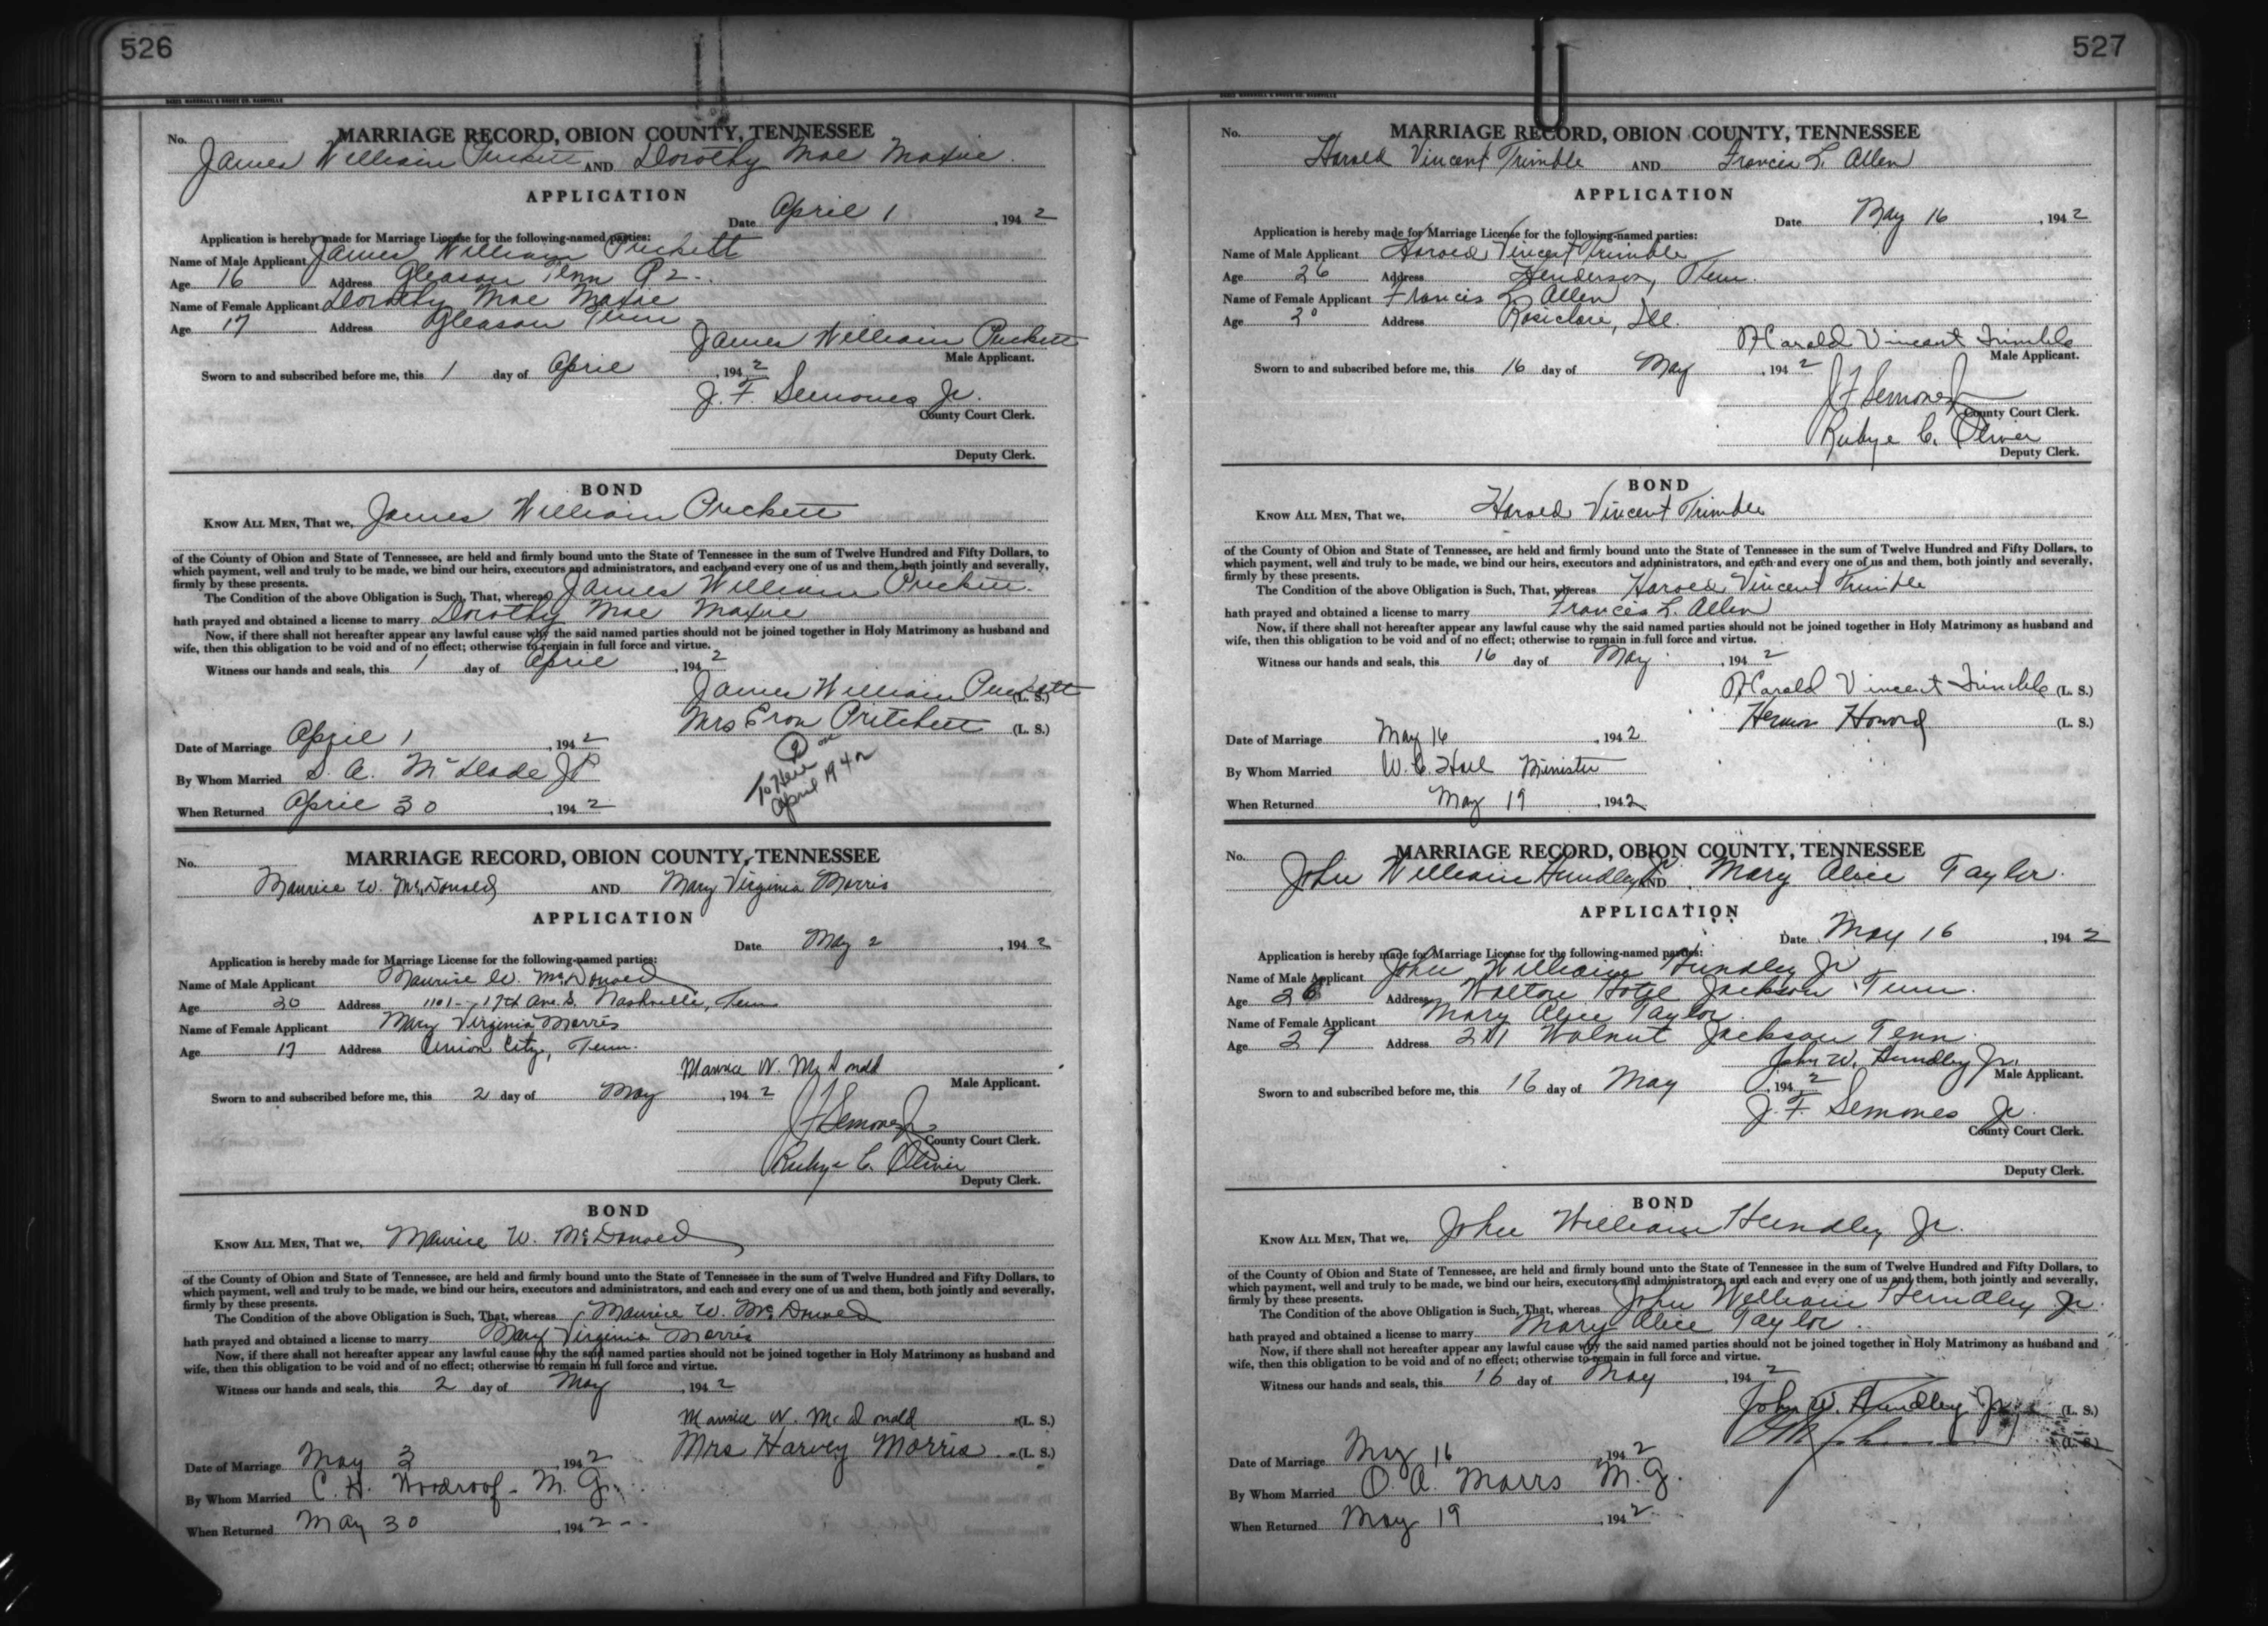 526
No.
MARRIAGE RECORD, OBION COUNTY, TENNESSEE
James William Puckett AND Dorothy Mae Maxie
APPLICATION
Date April 1, 1942
Application is hereby made for Marriage License for the following-named parties:
Name of Male Applicant James William Puckett
Age 16 Address Gleason Tenn R 2
Name of Female Applicant Dorothy Mae
Age 17 Address Gleason Tenn
James William Puckett
Male Applicant.
Sworn to and subscribed before me, this 1 day of April, 1942
J. F. Semones Jr.
County Court Clerk.
Deputy Clerk.
BOND
KNOW ALL MEN, That we, James William Puckett
of the County of Obion and State of Tennessee, are held and firmly bound unto the State of Tennessee in the sum of Twelve Hundred and Fifty Dollars, to
which payment, well and truly to be made, we bind our heirs, executors and administrators, and each and every one of us and them, both jointly and severally,
firmly by these presents.
The Condition of the above Obligation is Such, That, whereas James William Puckett
hath prayed and obtained a license to marry Dorothy Mae
Now, if there shall not hereafter appear any lawful cause why the said named parties should not be joined together in Holy Matrimony as husband and
wife, then this obligation to be void and of no effect; otherwise to remain in full force and virtue.
Witness our hands and seals, this 1 day of April, 1942
James William Puckett (L. S.)
Mrs Eron Pritchett (L. S.)
Date of Marriage April 1, 1942
By Whom Married S. A. McDade JP
When Returned April 30, 1942
To Here
April 1942
No.
MARRIAGE RECORD, OBION COUNTY, TENNESSEE
Maurice W. McDonald AND Mary Virginia Morris
APPLICATION
Date May 2, 1942
Application is hereby made for Marriage License for the following-named parties:
Name of Male Applicant Maurice W. McDonald
Age 20 Address 1101 - 17th Ave. S. Nashville, Tenn
Name of Female Applicant Mary Virginia Morris
Age 17 Address Union City, Tenn.
Maurice W. McDonald
Male Applicant.
Sworn to and subscribed before me, this 2 day of May, 1942
J F Semones Jr
County Court Clerk.
Rubye C. Oliver
Deputy Clerk.
BOND
KNOW ALL MEN, That we, Maurice W. McDonald
of the County of Obion and State of Tennessee, are held and firmly bound unto the State of Tennessee in the sum of Twelve Hundred and Fifty Dollars, to
which payment, well and truly to be made, we bind our heirs, executors and administrators, and each and every one of us and them, both jointly and severally,
firmly by these presents.
The Condition of the above Obligation is Such, That, whereas Maurice W. McDonald
hath prayed and obtained a license to marry Mary Virginia Morris
Now, if there shall not hereafter appear any lawful cause why the said named parties should not be joined together in Holy Matrimony as husband and
wife, then this obligation to be void and of no effect; otherwise to remain in full force and virtue.
Witness our hands and seals, this 2 day of May, 1942
Maurice W. McDonald (L. S.)
Mrs Harvey Morris (L. S.)
Date of Marriage May 3, 1942
By Whom Married C. H. Woodroof - M. G.
When Returned May 30, 1942
527
No.
MARRIAGE RECORD, OBION COUNTY, TENNESSEE
Harold Vincent Trimble AND Francis L. Allen
APPLICATION
Date May 16, 1942
Application is hereby made for Marriage License for the following-named parties:
Name of Male Applicant Harold Vincent Trimble
Age 26 Address Henderson, Tenn.
Name of Female Applicant Francis L. Allen
Age 20 Address Rosiclare, Ill.
Harold Vincent Trimble
Male Applicant.
Sworn to and subscribed before me, this 16 day of May, 1942
J F Semones Jr
County Court Clerk.
Rubye C. Oliver
Deputy Clerk.
BOND
KNOW ALL MEN, That we, Harold Vincent Trimble
of the County of Obion and State of Tennessee, are held and firmly bound unto the State of Tennessee in the sum of Twelve Hundred and Fifty Dollars, to
which payment, well and truly to be made, we bind our heirs, executors and administrators, and each and every one of us and them, both jointly and severally,
firmly by these presents.
The Condition of the above Obligation is Such, That, whereas Harold Vincent Trimble
hath prayed and obtained a license to marry Francis L. Allen
Now, if there shall not hereafter appear any lawful cause why the said named parties should not be joined together in Holy Matrimony as husband and
wife, then this obligation to be void and of no effect; otherwise to remain in full force and virtue.
Witness our hands and seals, this 16 day of May, 1942
Harold Vincent Trimble (L. S.)
Herman Howard (L. S.)
Date of Marriage May 16, 1942
By Whom Married W. C. Hall Minister
When Returned May 19, 1942
No.
MARRIAGE RECORD, OBION COUNTY, TENNESSEE
John William Hundley Jr AND Mary Alice Taylor
APPLICATION
Date May 16, 1942
Application is hereby made for Marriage License for the following-named parties:
Name of Male Applicant John William Hundley Jr
Age 26 Address Walton Hotel Jackson Tenn.
Name of Female Applicant Mary Alice Taylor
Age 29 Address Walnut Jackson Tenn
John W. Hundley Jr.
Male Applicant.
Sworn to and subscribed before me, this 16 day of May, 1942
J. F. Semones Jr.
County Court Clerk.
Deputy Clerk.
BOND
KNOW ALL MEN, That we, John William Hundley Jr.
of the County of Obion and State of Tennessee, are held and firmly bound unto the State of Tennessee in the sum of Twelve Hundred and Fifty Dollars, to
which payment, well and truly to be made, we bind our heirs, executors and administrators, and each and every one of us and them, both jointly and severally,
firmly by these presents.
The Condition of the above Obligation is Such, That, whereas John William Hundley Jr.
hath prayed and obtained a license to marry Mary Alice Taylor
Now, if there shall not hereafter appear any lawful cause why the said named parties should not be joined together in Holy Matrimony as husband and
wife, then this obligation to be void and of no effect; otherwise to remain in full force and virtue.
Witness our hands and seals, this 16 day of May, 1942
John W. Hundley Jr. (L. S.)
(L. S.)
Date of Marriage May 16, 1942
By Whom Married O. A. Marrs M. G.
When Returned May 19, 1942